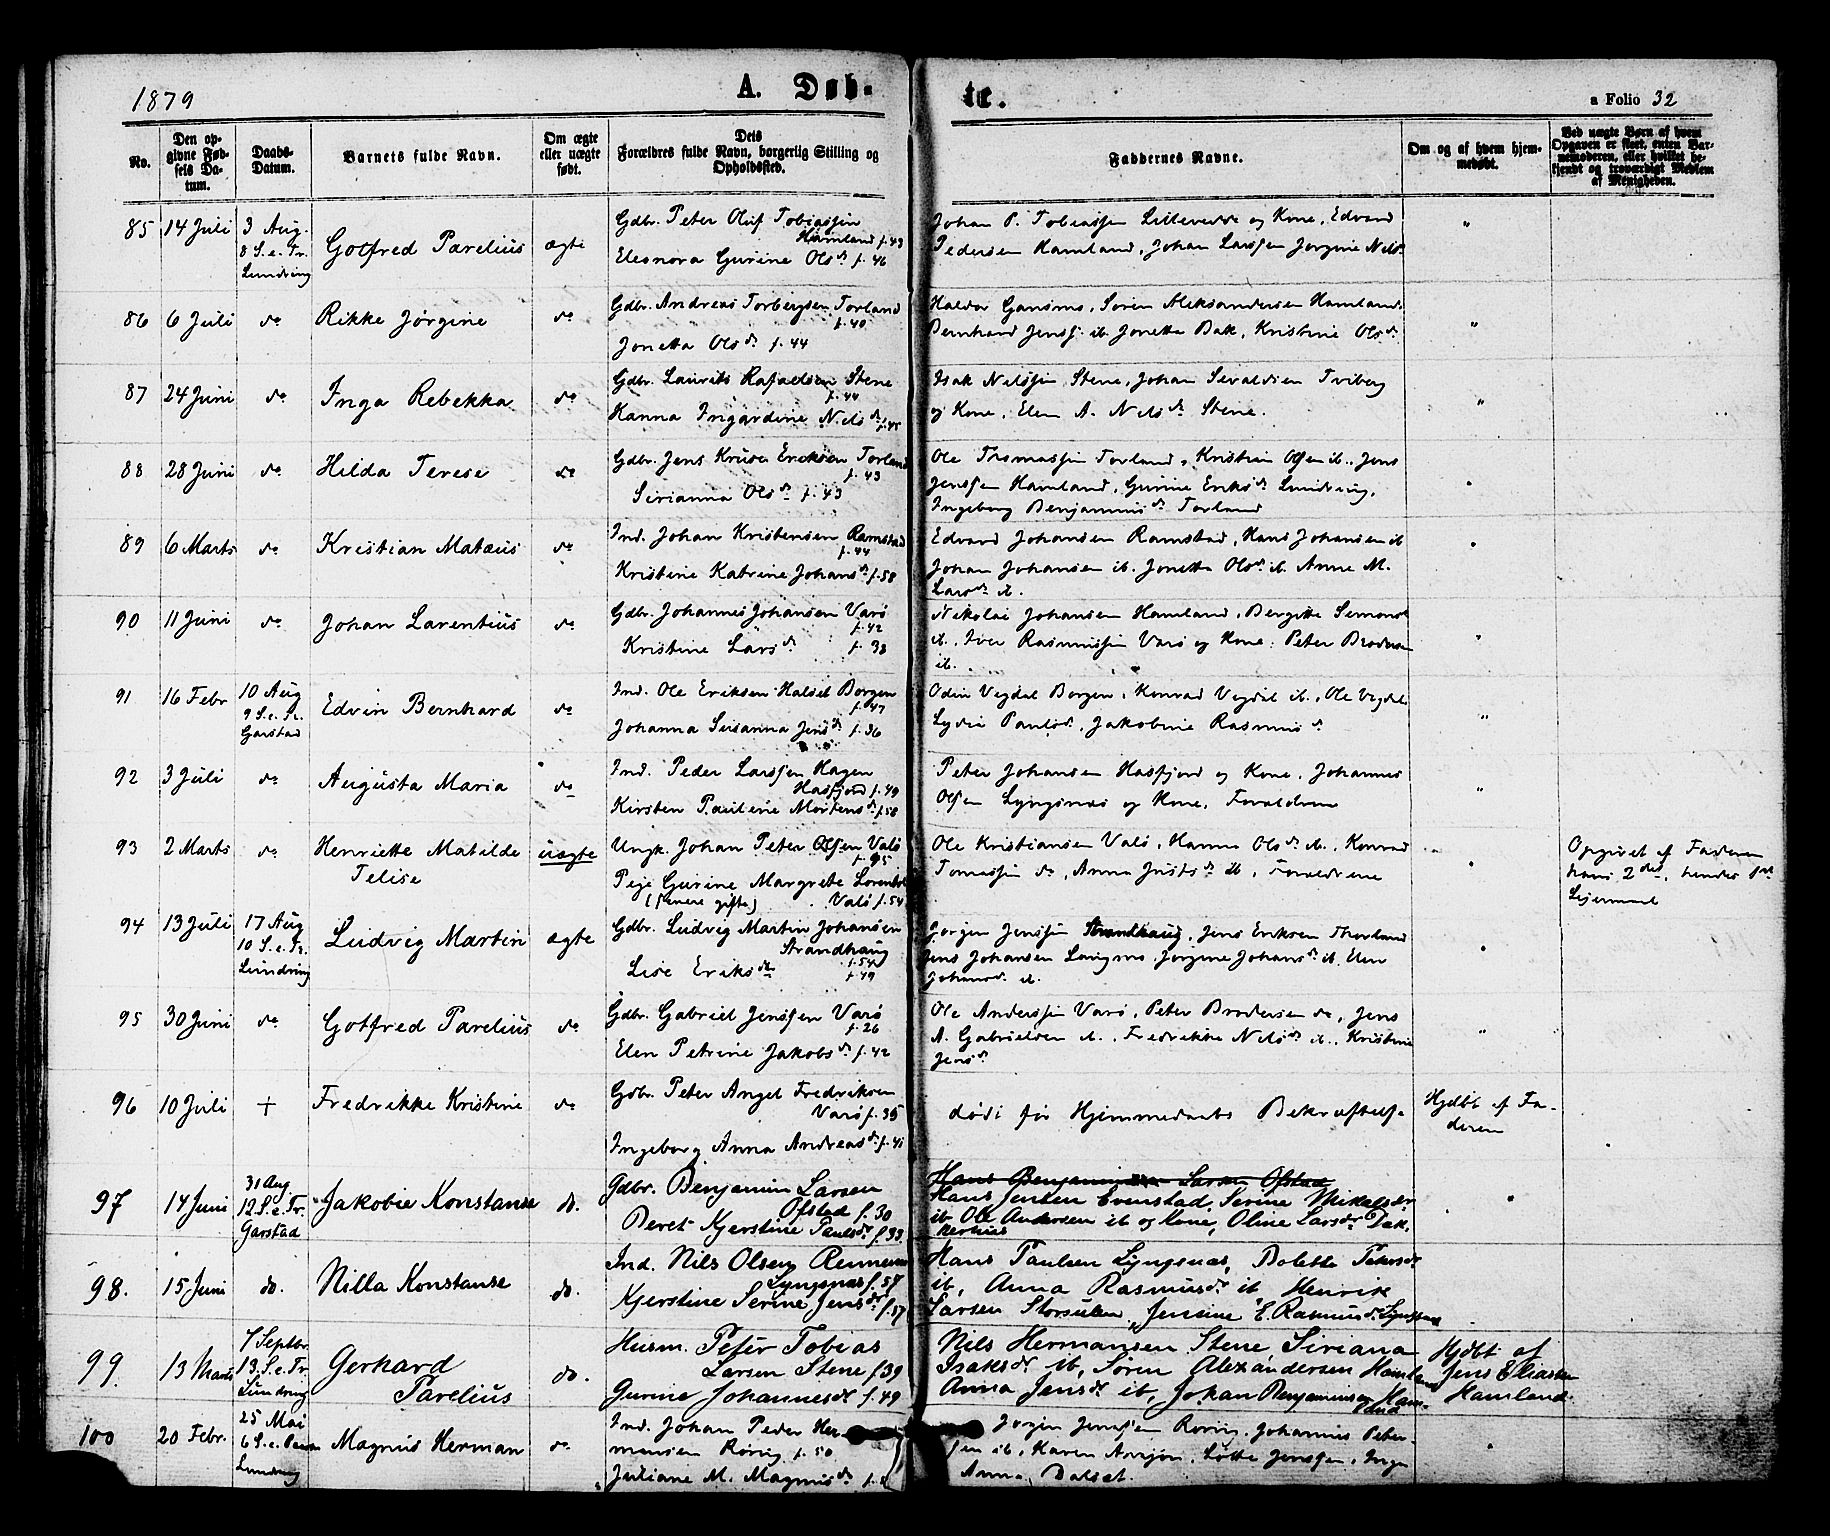 1879
A. Døb-
te.
a Folio 32
No.
Den op-
givne Fød-
sels Da-
tum.
Daabs-
Datum.
Barnets fulde Navn.
Om ægte
eller uægte
født.
Dets
Forældres fulde Navn, borgerlig Stilling og
Opholdssted.
Faddernes Navne.
Om og af hvem hjem-
medøbt.
Ved uægte Børn af hvem
Opgaven er skeet, enten Bar-
nemoderen, eller hvilket be-
kjendt og troværdigt Medlem
af Menigheden.
85
14 Juli
3 Aug.
8 S. e. Tr.
Lundring
Gotfred Parelius
ægte
Gdbr. Peter Oluf Tobiassen
Hamland f. 43
Eleonora Gurine Olsd. f. 46
Johan P. Tobiassen og Kone, Edvard
Pedersen Hamland, Johan Larssen Jørgine Nils
"
86
6 Juli
do
Rikke Jørgine
do
Gdbr. Andreas Torbergsen Torland
f. 40
Jonetta Olsd. f. 44
Haldor Gansmo, Søren Aleksandersen Hamland
Bernhard Jenss. ib. Jonetta Bak, Kristine Olsd.
"
87
24 Juni
do
Inga Rebekka
do
Gdbr. Laurits Rafaelsen Stene
f. 44
Hanna Ingardine Nilsd. f. 45
Isak Nilssen Stene, Johan Sivaldsen Tviberg
og Kone, Elen A. Nilsd. Stene.
"
88
28 Juni
do
Hilda Terese
do
Gdbr. Jens Kruse Eriksen Torland
f. 43
Sirianna Olsd. f. 43
Ole Thomassen Torland, Kristian Olsen ib., Jens
Jenssen Hamland, Gurine Eriksd. Lundring,
Ingeborg Benjaminsd. Torland
89
6 Marts
do
Kristian Matæus
do
Ind. Johan Kristensen Ramstad
f. 44
Kristine Katrine Johansd. f. 58
Edvard Johansen Ramstad, Hans Johansen ib
Johan Johansen ib. Jonetta Olsd. ib. Anne M.
Larsd. ib.
90
11 Juni
do
Johan Larentius
do
Gdbr. Johannes Johansen Varø
f. 42
Kristine Larsd. f. 38
Nikolai Johansen Hamland, Bergitte Simonsd.
ib., Iver Rasmussen Varø og Kone, Peter Brodersen
ib.
"
91
16 Febr
10 Aug
9 S. e. Tr.
Garstad
Edvin Bernhard
do
Ind. Ole Eriksen Halset Borgen
f. 47
Johanna Susanna Jensd. f. 36
Odin Vegdal Borgen, Konrad Vegdal ib., Ole Vegdal
Lydia Paulsd., Jakobine Rasmusd.
"
92
3 Juli
do
Augusta Maria
do
Ind. Peder Larssen Hagen
Hasfjord f. 49
Kirsten Pauline Mortensd. f. 58
Peter Johansen Hasfjord og Kone, Johannes
Olsen Lyngsnæs og Kone, Forældrene
"
93
2 Marts
do
Henriette Matilde
Telise
uægte
Ungk. Johan Peter Olsen Valø
f. 95
Pige Gurine Margrete Lorents
(senere gifte) Valø f. 54
Ole Kristiansen Valø, Hanna Olsd. ib., Konrad
Tomassen do, Anna Justsd. ib., Forældrene
Opgivet af Faderen
hans 2den, hendes 1ste
Leiermaal
94
13 Juli
17 Aug
10 S. e. Tr.
Lundring
Ludvig Martin
ægte
Gdbr. Ludvig Martin Johansen
Strandhaug
f. 54
Lise Eriksd. f. 49
Jørgen Jenssen Strandhaug, Jens Eriksen Thorland
Jens Johansen Langmo. Jørgine Johansd. ib. Elen
Johansd. ib.
95
30 Juni
do
Gotfred Parelius
do
Gdbr. Gabriel Jenssen Varø
f. 26
Elen Petrine Jakobsd. f. 42
Ole Anderssen Varø, Peter Brodersen do, Jens
A. Gabrielsen ib., Fredrikke Nilsd. ib., Kristine
Jensd.
"
96
10 Juli
+
Fredrikke Kristine
do
Gdbr. Peter Angel Fredriksen
Varø f. 35
Ingeborg Anna Andreasd. f. 41
døde før Hjemmedaabs Bekræftelse
Hjdbt af Fa-
deren
97
14 Juni
31 Aug
12 S. e. Tr.
Garstad
Jakobie Konstanse
do.
Gdbr. Benjamin Larsen
Ofstad f. 30
Beret Kjerstine Paulsdr f. 33
Hans Benjaminsen Larsen Ofstad
Hans Jensen Evenstad, Serine Mikelsdr
ib Ole Andersen ib og Kone, Oline Larsdr
98.
15 Juni
do.
Nilla Konstanse
do.
Ind. Nils Olsen
Lyngsnæs f. 57
Kjerstine Serine Jensdr f. 57
Hans Paulsen Lyngsnæs, Bolette Petersdr
ib, Anna Rasmusdr ib, Henrik
Larsen Storsulen, Jensine E. Rasmusdr Lyngsnæs
99
13 Marts
7 Septbr.
13. S. e. Tr
Lundring
Gerhard
Parelius
do.
Husm. Peter Tobias
Larsen Stene f. 39
Gurine Johannesdr f. 49
Nils Hermansen Stene Siriana
Isaksdr ib, Søren Alexandersen Hamland
Anna Jensdr ib, Johan Benjaminsen Ham-
land
Hjdbt af
Jens Eliassen
Hamland.
100
20 Febr.
25 Mai
6 S. e. Paaske
Lundring
Magnus Herman
do
Ind. Johan Peder Her-
mansen Røring f. 50
Juliane M. Magnusd. f.
Jørgen Jenssen Røring, Johannes Peter-
sen ib, Karen Ansjøn, Lotte Jenssen, Inger
Anna Dalset.